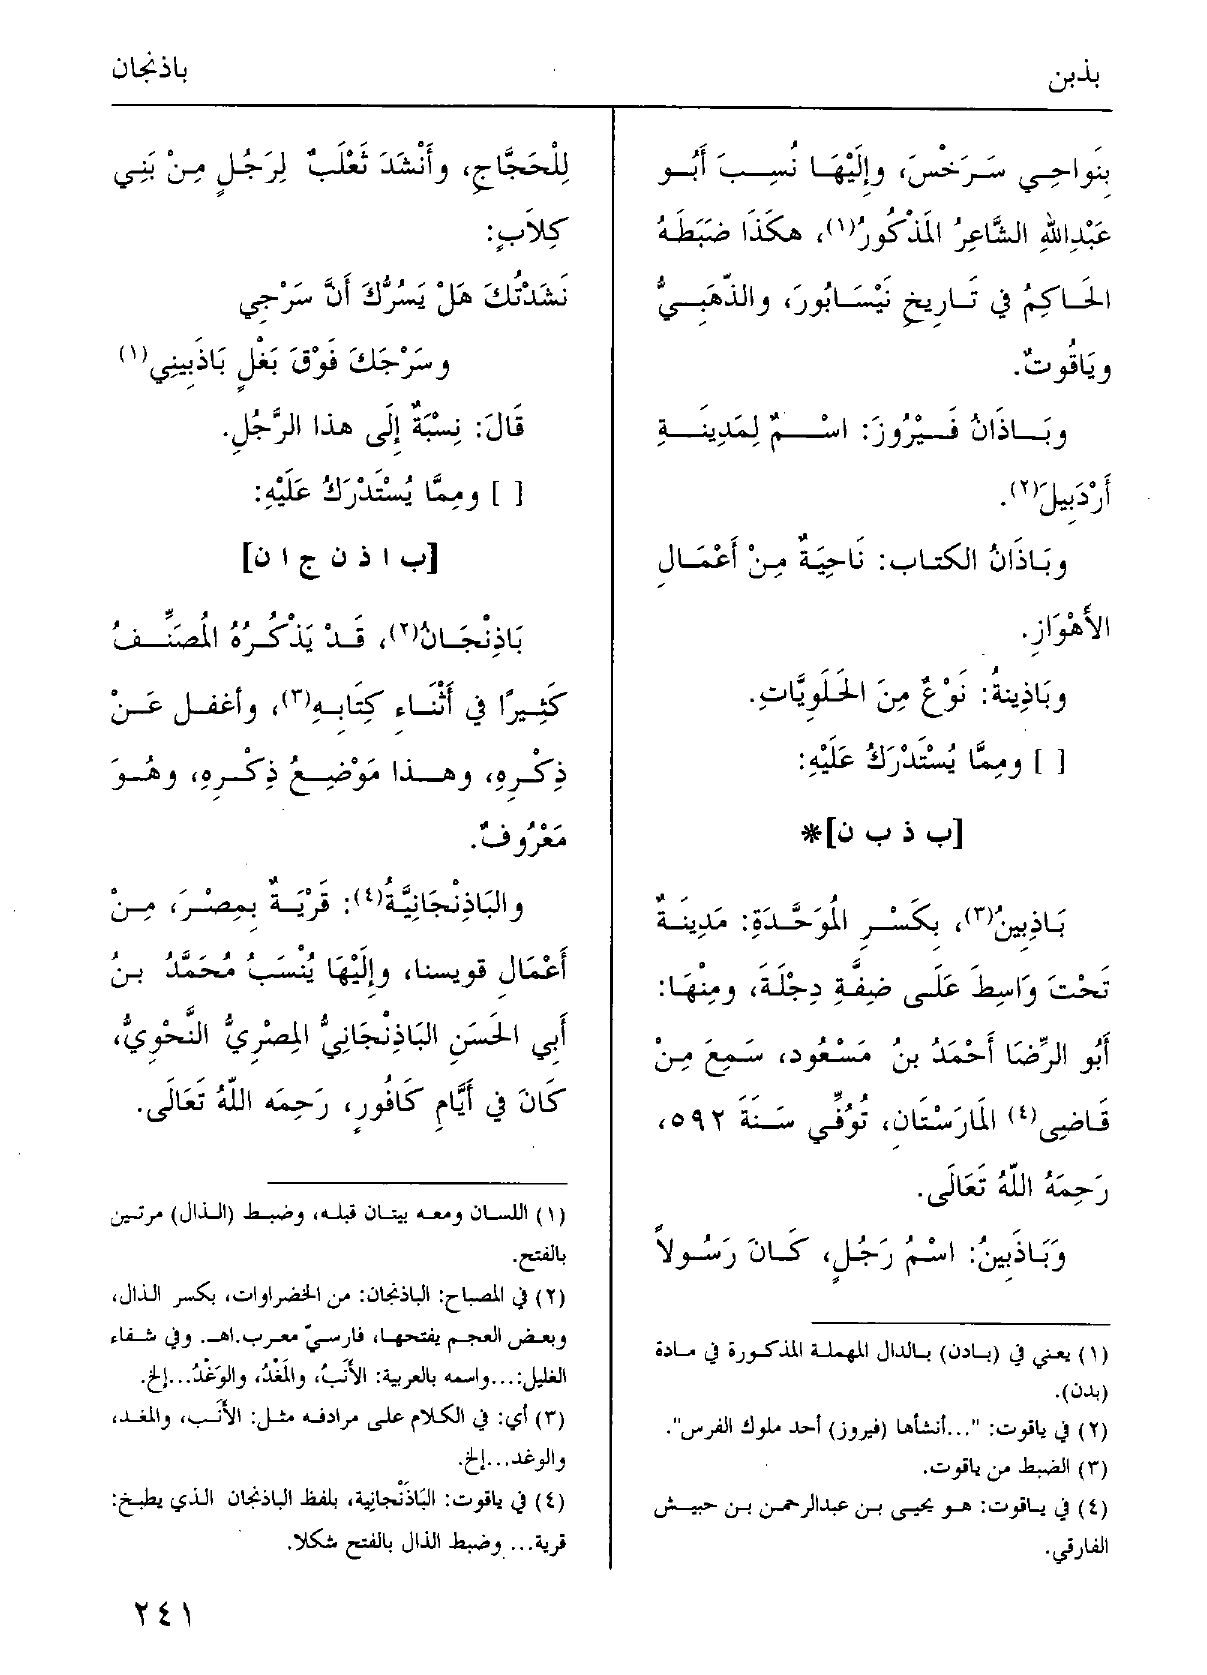 بذبن
باذنجان
بِنَواحِي سَرَخْسَ، وإِلَيْهَا نُسِبَ أَبُو
عَبْدِاللهِ الشَّاعِرُ المَذْكُورُ(١)، هكَذَا ضَبَطَهُ
الحَاكِمُ في تَارِيخِ نَيْسَابُورَ، والذَّهَبِيُّ
ويَاقُوتٌ.
وبَاذَانُ فَيْرُوزَ: اسْمٌ لِمَدِينَةِ
أَرْدَبِيلَ(٢).
وبَاذَانُ الكتاب: نَاحِيَةٌ مِنْ أَعْمَالِ
الأَهْوَازِ.
وبَاذِينةُ: نَوْعٌ مِنَ الحَلَوِيَّاتِ.
[ ] ومِمَّا يُسْتَدْرَكُ عَلَيْهِ:
[ب ذ ب ن]*
بَاذِبِينُ(٣)، بِكَسْرِ المُوَحَّدَةِ: مَدِينَةٌ
تَحْتَ وَاسِطَ عَلَى ضِفَّةِ دِجْلَةَ، ومِنْهَا:
أَبُو الرِّضَا أَحْمَدُ بنُ مَسْعُودٍ، سَمِعَ مِنْ
قَاضِي(٤) المَارَسْتَانِ، تُوُفِّيَ سَنَةَ ٥٩٢،
رَحِمَهُ اللَّهُ تَعَالَى.
وَبَاذَبِينُ: اسْمُ رَجُلٍ، كَانَ رَسُولاً
(١) يعني في (بادن) بالدال المهملة المذكورة في مادة
(بدن).
(٢) في ياقوت: "...أنشأها (فيروز) أحد ملوك الفرس".
(٣) الضبط من ياقوت.
(٤) في ياقوت: هو يحيى بن عبدالرحمن بن حبيش
الفارقي.
لِلْحَجَّاجِ، وأَنْشَدَ ثَعْلَبٌ لِرَجُلٍ مِنْ بَنِي
كِلاَبٍ:
نَشَدْتُكَ هَلْ يَسُرُّكَ أَنَّ سَرْجِي
وسَرْجَكَ فَوْقَ بَغْلٍ بَاذَبِينِي(١)
قَالَ: نِسْبَةٌ إِلَى هذا الرَّجُلِ.
[ ] ومِمَّا يُسْتَدْرَكُ عَلَيْهِ:
[ب ا ذ ن ج ا ن]
بَاذِنْجَانُ(٢)، قَدْ يَذْكُرُهُ المُصَنِّفُ
كَثِيرًا في أَثْنَاءِ كِتَابِهِ(٣)، وأغفل عَنْ
ذِكْرِهِ، وهذا مَوْضِعُ ذِكْرِهِ، وهُوَ
مَعْرُوفٌ.
والبَاذِنْجَانِيَّةُ(٤): قَرْيَةٌ بِمِصْرَ، مِنْ
أَعْمَالِ قويسنا، وإِلَيْهَا يُنْسَبُ مُحَمَّدُ بنُ
أَبِي الحَسَنِ البَاذِنْجَانِيُّ المِصْرِيُّ النَّحْوِيُّ،
كَانَ فِي أَيَّامِ كَافُورٍ، رَحِمَه اللَّهُ تَعَالَى.
(١) اللسان ومعه بيتان قبله، وضبط (الذال) مرتين
بالفتح.
(٢) في المصباح: الباذنجان: من الخضراوات، بكسر الذال،
وبعض العجم يفتحها، فارسيّ معرب.اهـ. وفي شفاء
الغليل:...واسمه بالعربية: الأَنَبُ، والمَغْدُ، والوَغْدُ...إلخ.
(٣) أي: في الكلام على مرادفه مثل: الأنَب، والمغد،
والوغد...إلخ.
(٤) في ياقوت: البَاذَنْجانية، بلفظ الباذنجان الذي يطبخ:
قرية... وضبط الذال بالفتح شكلا.
٢٤١